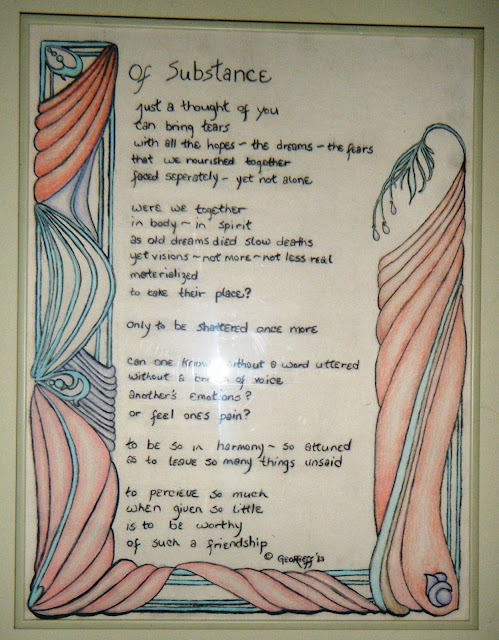 Of Substance
just a thought of you
can bring tears
with all the hopes ~ the dreams ~ the fears
that we nourished together
faced seperately ~ yet not alone
were we together
in body ~ in spirit
as old dreams died slow deaths
yet visions ~ not more ~ not less real
materialized
to take their place?
only to be shattered once more
can one know without a word uttered
without a of voice
another's emotions?
or feel ones pain?
to be so in harmony ~ so attuned
as to leave so many things unsaid
to percieve so much
when given so little
is to be worthy
of such a friendship
©